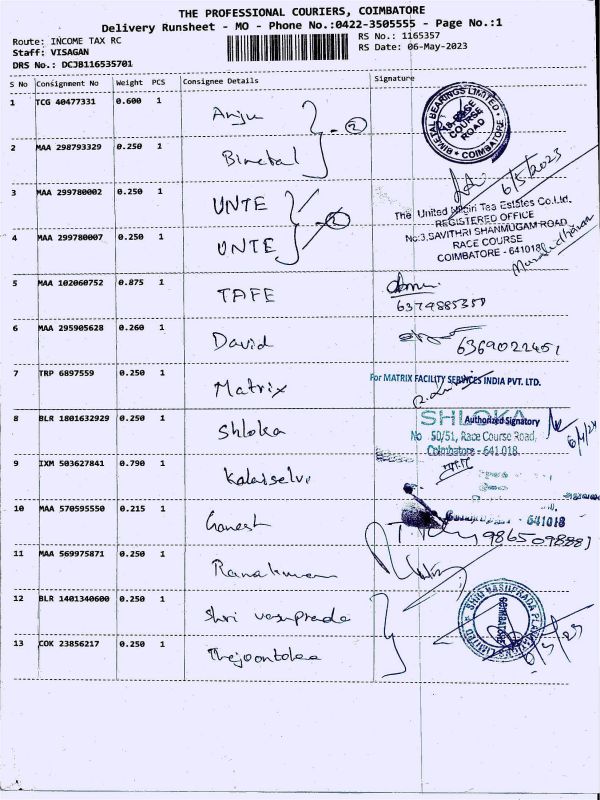 THE PROFESSIONAL COURIERS, COIMBATORE
Delivery Runsheet - MO - Phone No.:0422-3505555 - Page No.:1
Route: INCOME TAX RC
RS No.: 1165357
Staff: VISAGAN
RS Date: 06-May-2023
DRS No.: DCJB116535701
S No Consignment No Weight PCS Consignee Details Signature
1 TCG 40477331 0.600 1 Anju
BIMETAL BEARINGS LIMITED
RACE COURSE ROAD
COIMBATORE
2 MAA 298793329 0.250 1 Bimetal
2
6/5/2023
3 MAA 299780002 0.250 1 UNTE
The United Nilgiri Tea Estates Co.Ltd.
REGISTERED OFFICE
No:3,SAVITHRI SHANMUGAM ROAD
RACE COURSE
COIMBATORE - 641018
4 MAA 299780007 0.250 1 UNTE
2
5 MAA 102060752 0.875 1 TAFE
6 MAA 295905628 0.260 1 David
6369022451
7 TRP 6897559 0.250 1 Matrix
For MATRIX FACILITY SERVICES INDIA PVT. LTD.
Authorized Signatory
8 BLR 1801632929 0.250 1 Shloka
SHLOKA
No 50/51, Race Course Road,
Coimbatore - 641 018.
9 IXM 503627841 0.790 1 Kalaiselvi
10 MAA 570595550 0.215 1 Ganesh
641018
11 MAA 569975871 0.250 1
12 BLR 1401340600 0.250 1 Shri vasuprada
COIMBATORE
13 COK 23856217 0.250 1